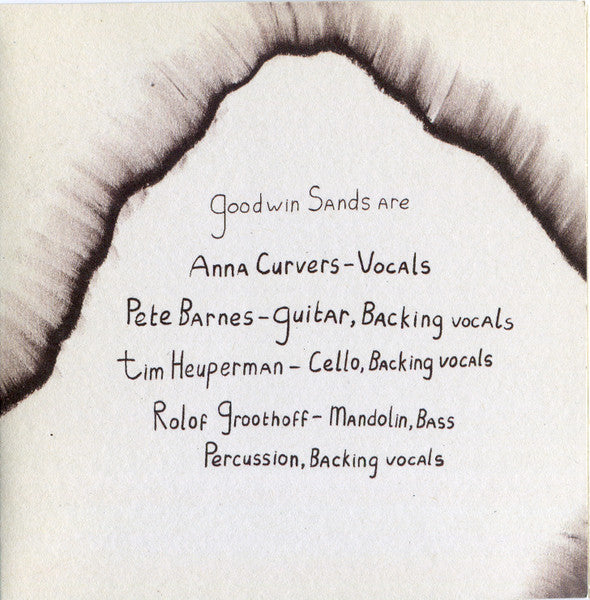 goodwin Sands are
Anna Curvers-Vocals
Pete Barnes-guitar, Backing vocals
tim Heuperman - Cello, Backing vocals
Rolof groothoff- Mandolin, Bass
Percussion, Backing vocals